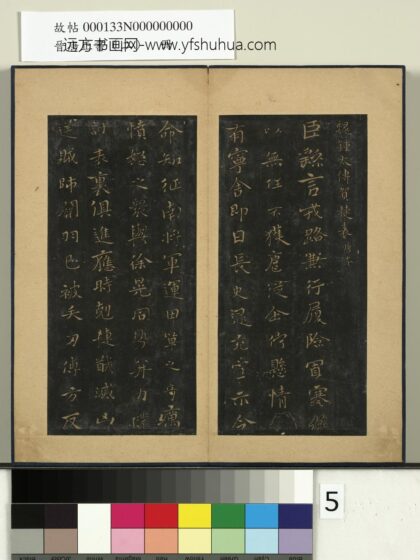 故帖 000133N000000000
远方书画网-www.yfshuhua.com
鍾大傅賀捷表
臣繇言戎路兼行履險冒寒臣
以無任不獲扈從企佇懸情無
有寧舍即日長史逯充宣示令
命知征南將軍運田單之奇厲
憤怒之衆與徐晃同勢并力撲
討表裏俱進應時剋捷馘滅凶
逆賊帥關羽已被矢刃傅方反
5